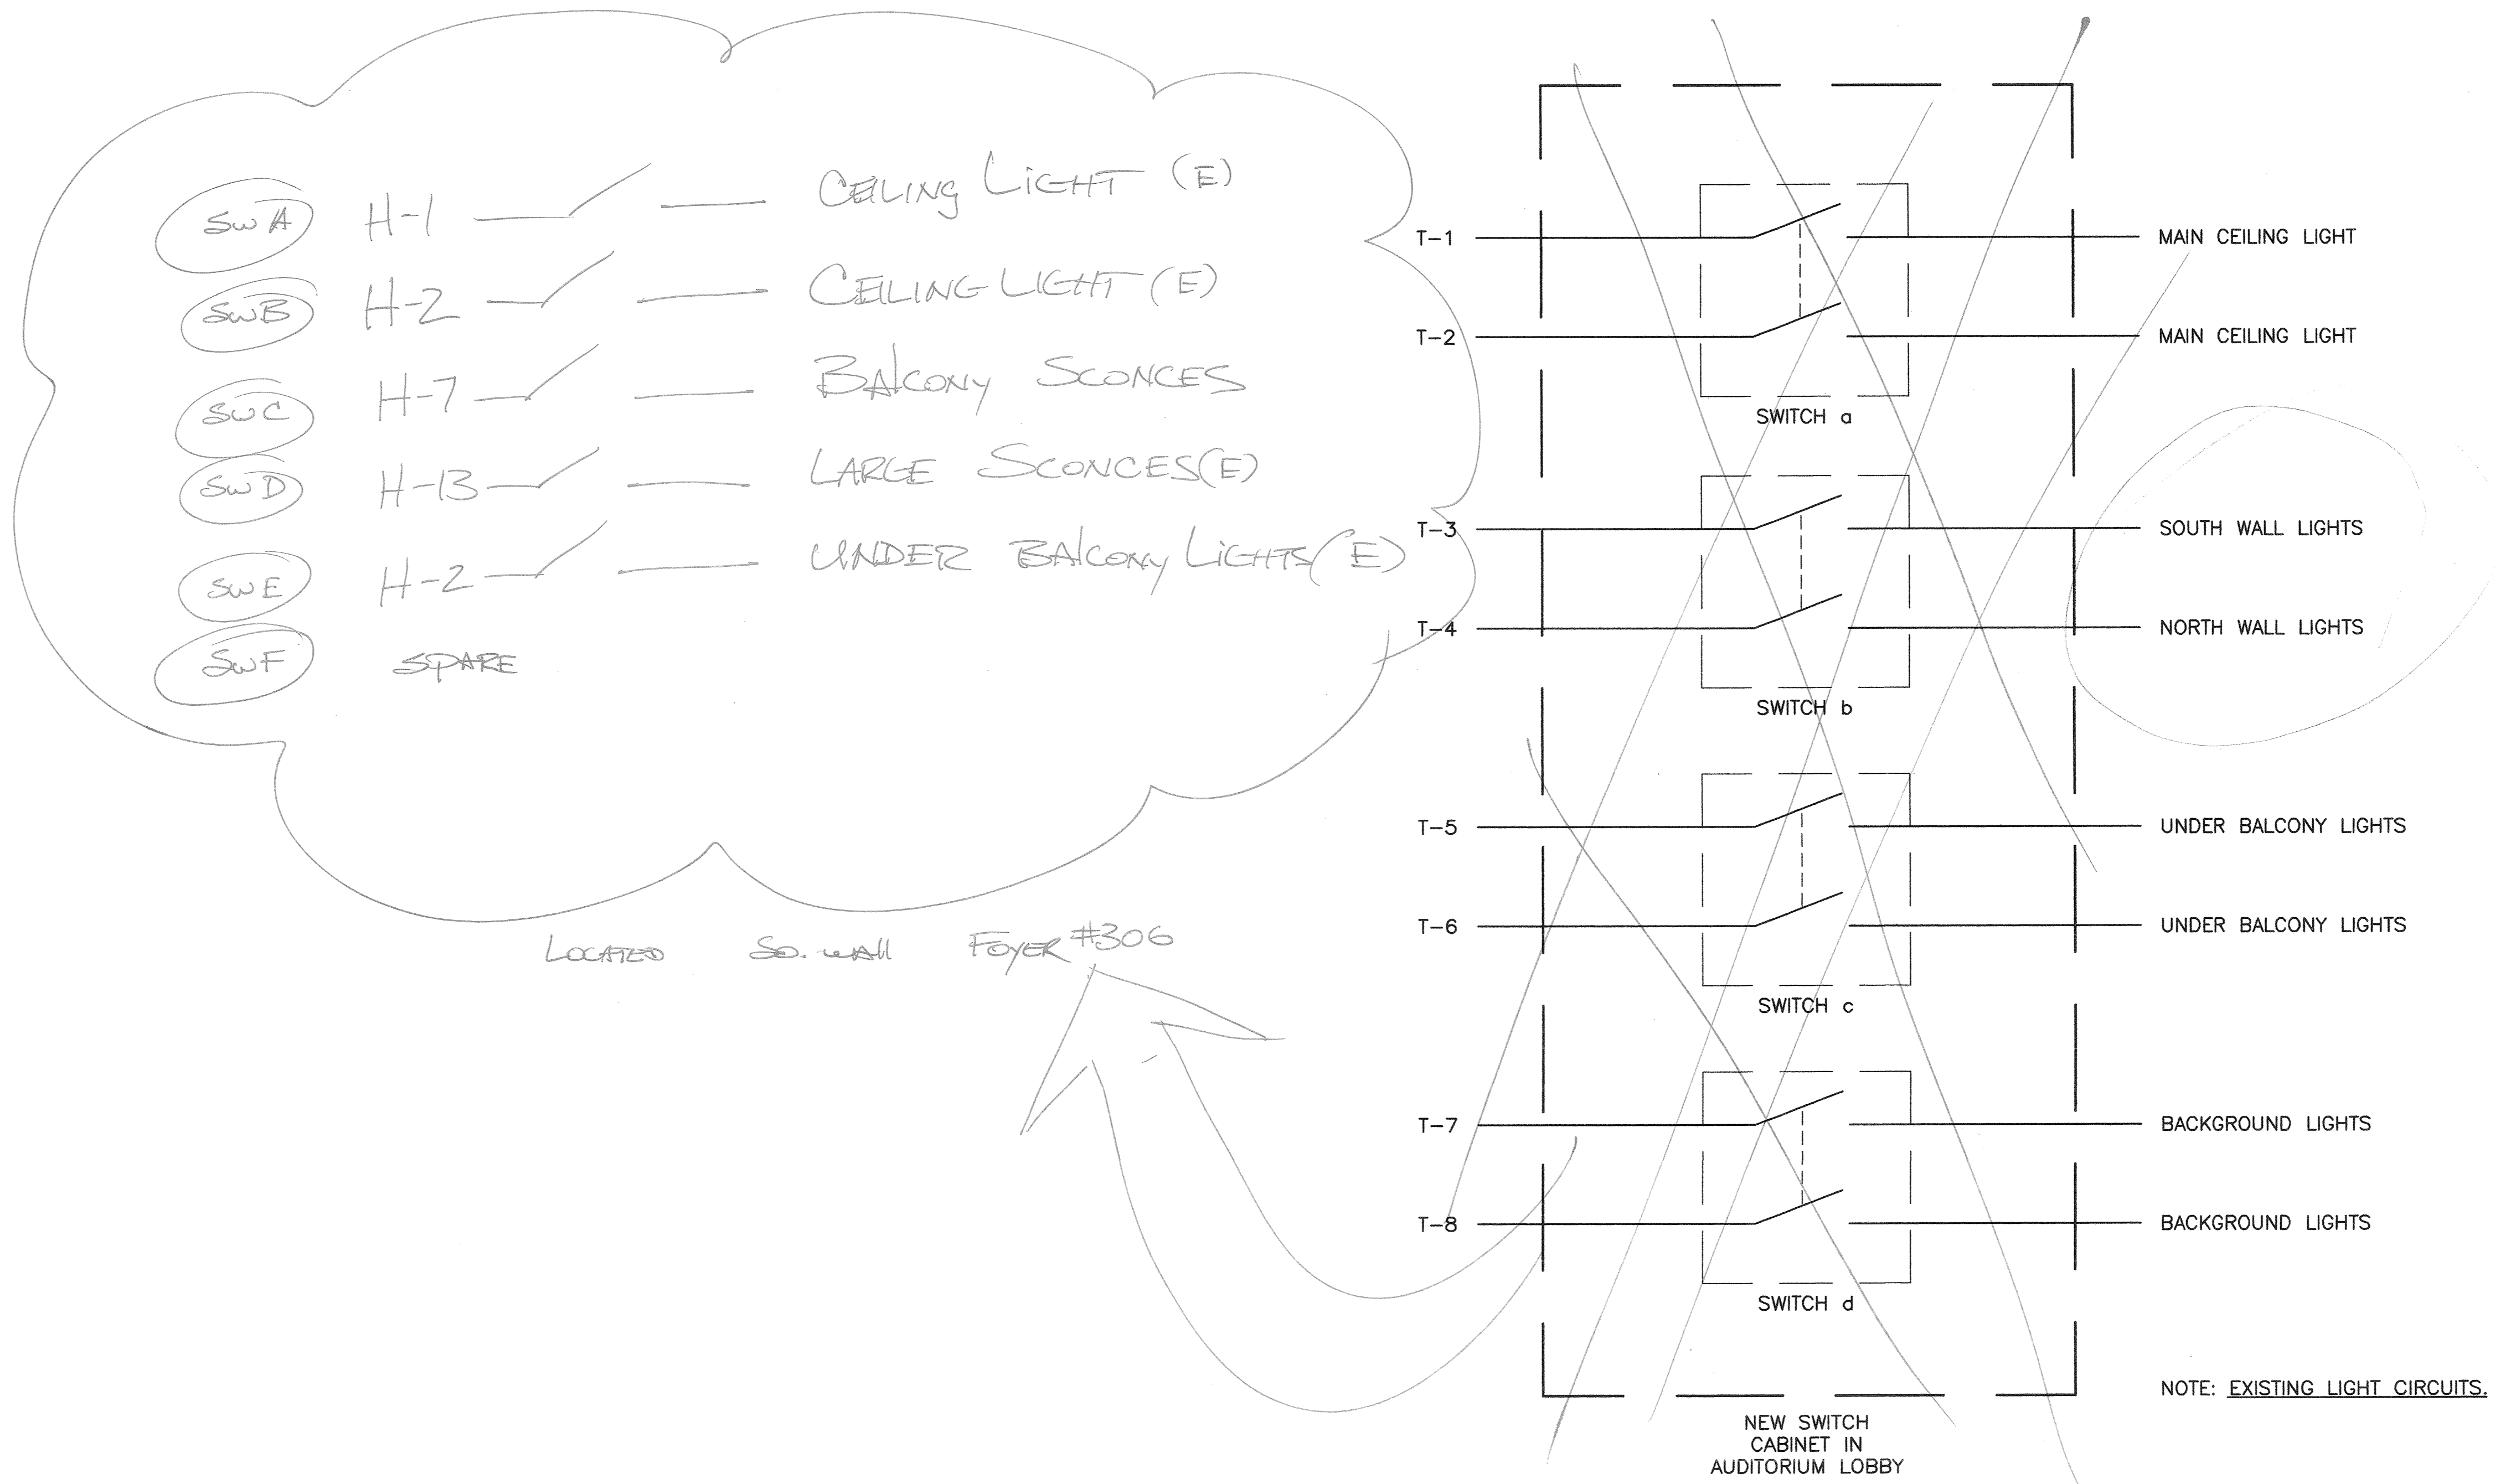 SWA H-1 CEILING LIGHT (E)
SWB H-2 CEILING LIGHT (E)
SWC H-7 BALCONY SCONCES
SWD H-13 LARGE SCONCES (E)
SWE H-2 UNDER BALCONY LIGHTS (E)
SWF SPARE
LOCATED SO. WALL FOYER #306
T-1 MAIN CEILING LIGHT
T-2 MAIN CEILING LIGHT
SWITCH a
T-3 SOUTH WALL LIGHTS
T-4 NORTH WALL LIGHTS
SWITCH b
T-5 UNDER BALCONY LIGHTS
T-6 UNDER BALCONY LIGHTS
SWITCH c
T-7 BACKGROUND LIGHTS
T-8 BACKGROUND LIGHTS
SWITCH d
NOTE: EXISTING LIGHT CIRCUITS.
NEW SWITCH
CABINET IN
AUDITORIUM LOBBY